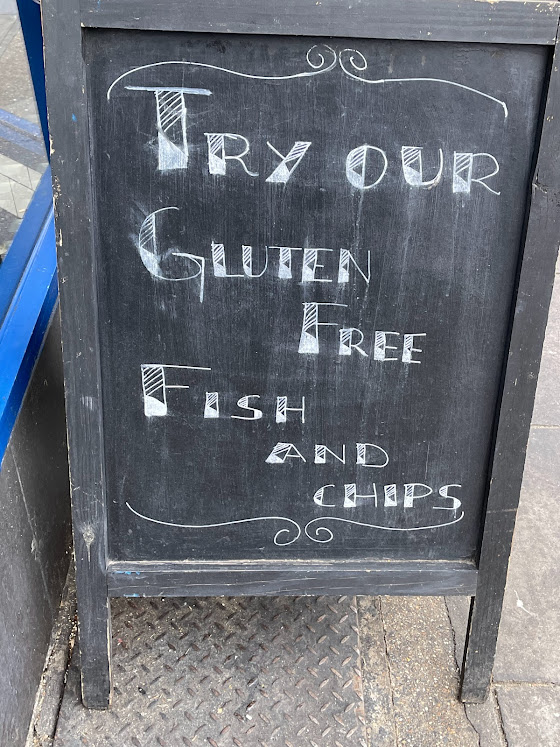 TRY OUR
GLUTEN
FREE
FISH
AND
CHIPS